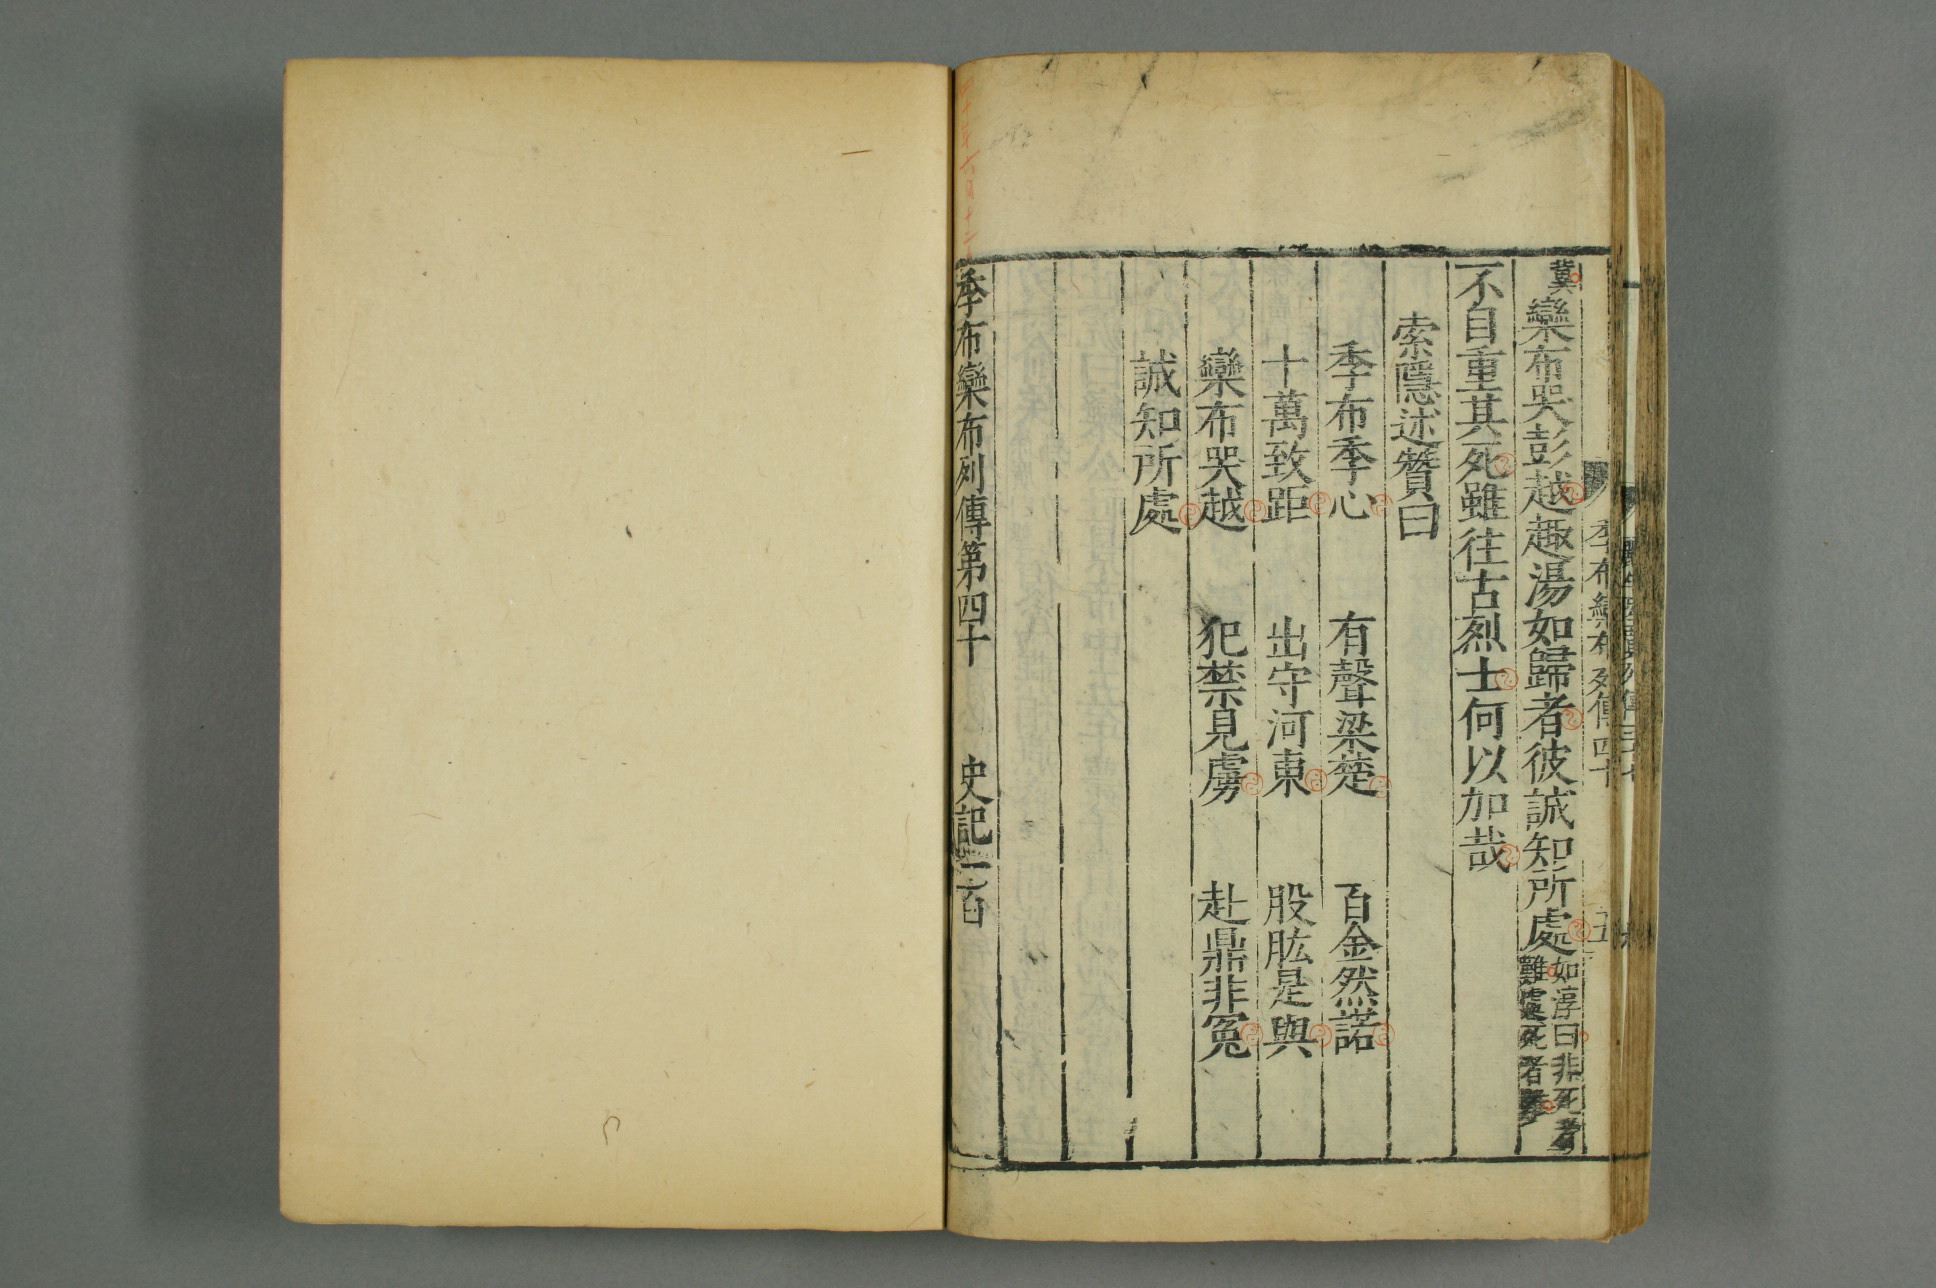 冀
欒布哭彭越趣湯如歸者彼誠知所處如淳曰非死者
難處死者難
不自重其死雖往古烈士何以加哉
索隱述贊曰
季布季心 有聲梁楚 百金然諾
十萬致距 出守河東 股肱是與
欒布哭越 犯禁見虜 赴鼎非冤
誠知所處
季布欒布列傳第四十 史記一百
季布欒布列傳四十